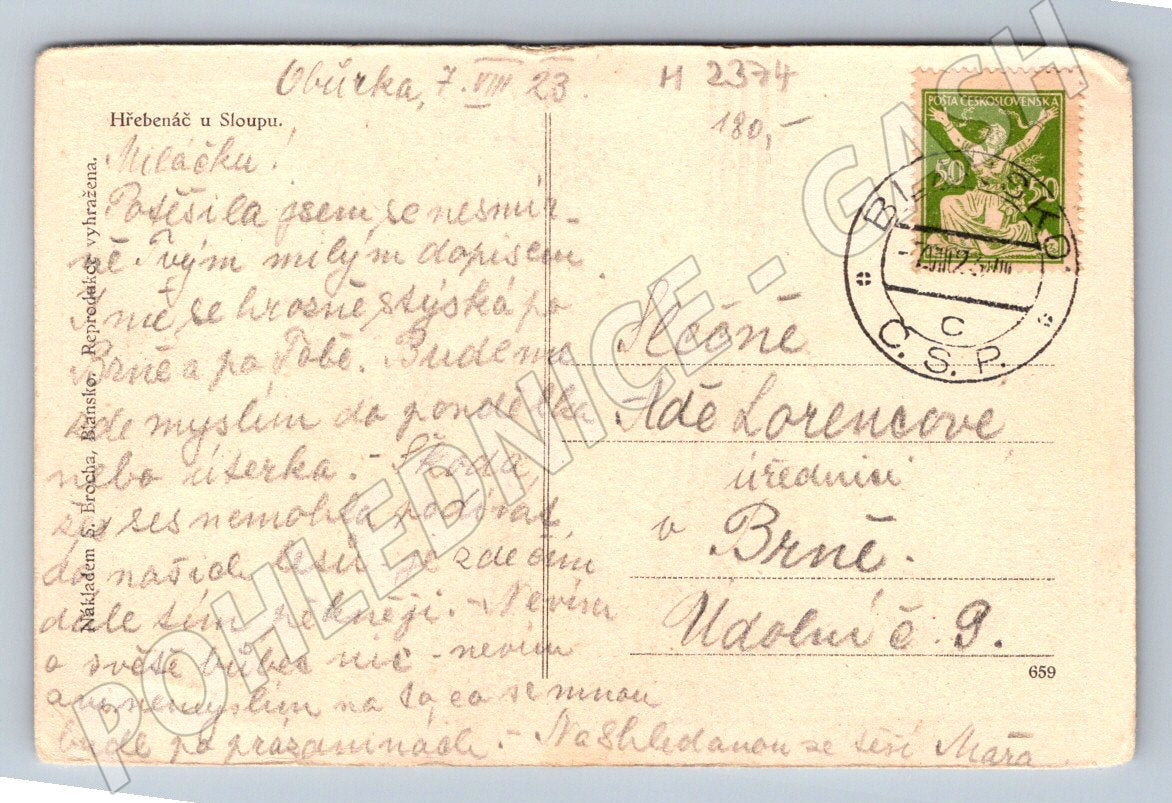 Obůrka, 7. VIII 23.
H 2374
180,-
Hřebenáč u Sloupu.
Miláčku!
Potěšila jsem se nesmír-
ně Tvým milým dopisem.
I mě se hrozně stýská po
Brně a po Tobě. Budeme
zde myslím do pondělka
nebo úterka. – Škoda,
že ses nemohla podívat
do našich lesů, je zde čím
dále tím pěkněji. – Nevím
o světě vůbec nic – nevím
a nemyslím na to, co se mnou
bude po prázdninách. – Na shledanou se těší Mářa
Nákladem S. Brocha, Blansko. Reprodukce vyhražena.
POŠTA ČESKOSLOVENSKA
50 50
BLANSKO
C
Č.S.P.
Slečně
Adě Lorencove
úřednici
v Brně.
Údolní č. 9.
659
POHLEDNICE - GASH